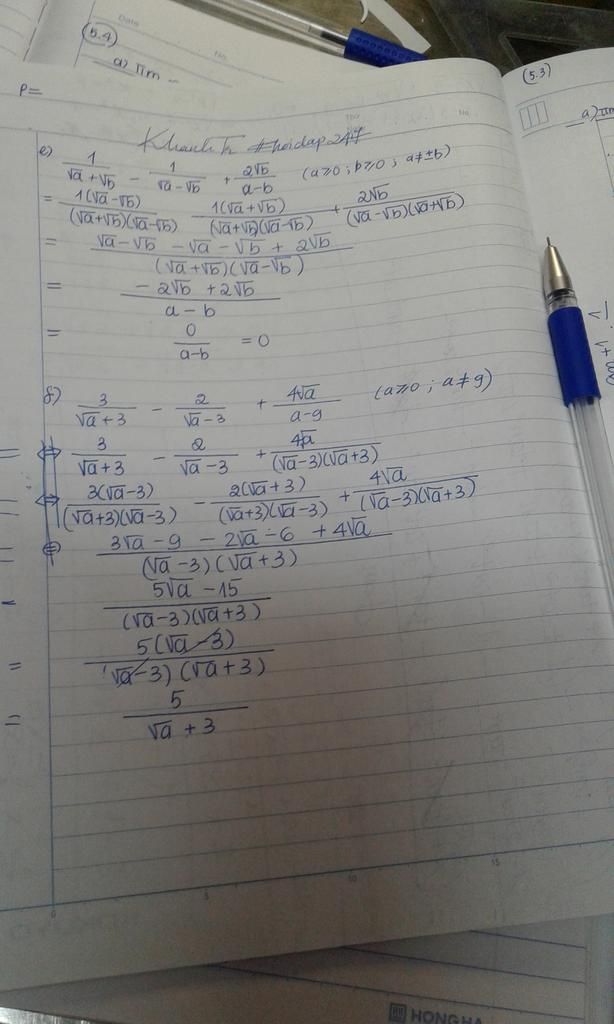 (5.4)
Date
No.
a) Tìm
(5.3)
P=
No.
a) Tìm
Khanh h #hoidap247
e) 1/(√a+√b) - 1/(√a-√b) + 2√b/(a-b) (a≥0; b≥0; a≠±b)
= 1(√a-√b)/((√a+√b)(√a-√b)) 1(√a+√b)/((√a+√b)(√a-√b)) + 2√b/((√a-√b)(√a+√b))
= (√a-√b -√a-√b + 2√b)/((√a+√b)(√a-√b))
= (-2√b +2√b)/(a-b)
= 0/(a-b) = 0
f) 3/(√a+3) - 2/(√a-3) + 4√a/(a-9) (a≥0; a≠9)
= ⇔ 3/(√a+3) - 2/(√a-3) + 4√a/((√a-3)(√a+3))
= ⇔ 3(√a-3)/((√a+3)(√a-3)) - 2(√a+3)/((√a+3)(√a-3)) + 4√a/((√a-3)(√a+3))
= (3√a-9 -2√a-6 +4√a)/((√a-3)(√a+3))
- (5√a-15)/((√a-3)(√a+3))
= 5(√a-3)/((√a-3)(√a+3))
= 5/(√a+3)
0 5 10 15
HONG HA